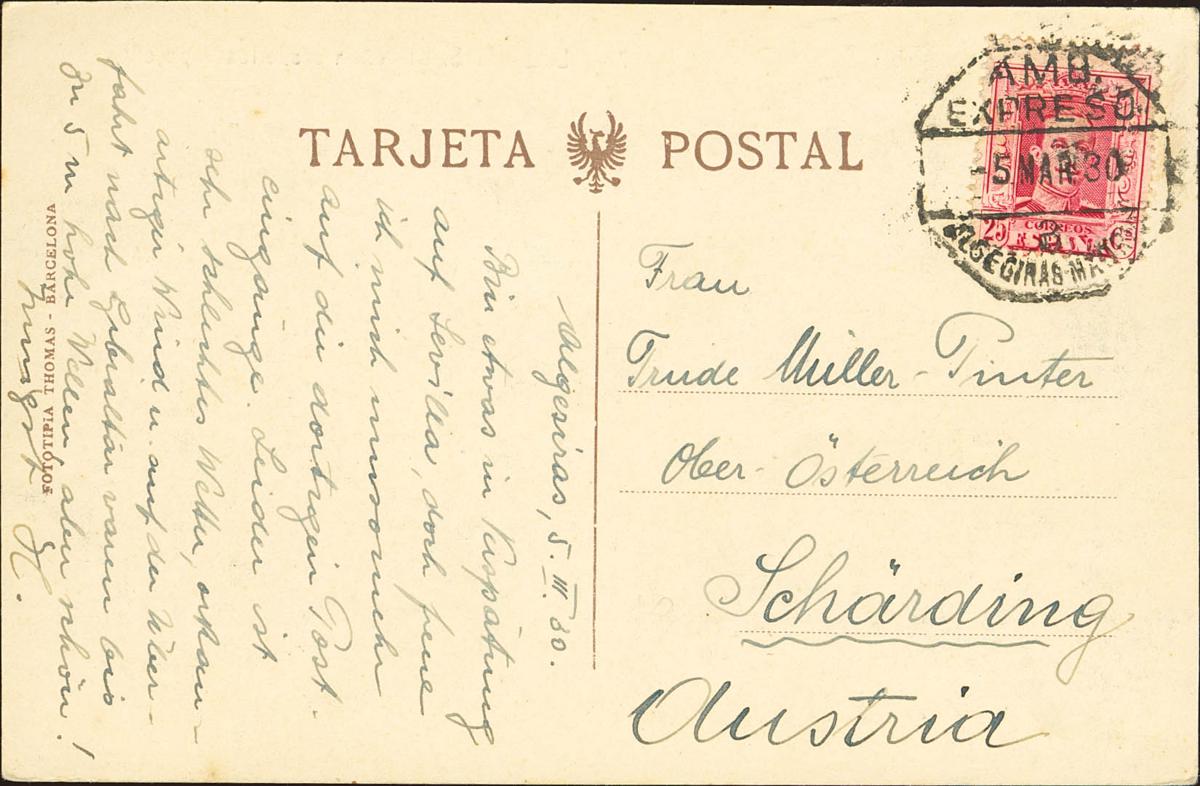 TARJETA POSTAL
AMB.
EXPRESO
-5 MAR 30
ALGECIRAS-MA
25 CORREOS
ESPAÑA
Algesiras, 5. III. 30.
Bin etwas in Verspätung
auf Sevilla, doch freue
ich mich umsomehr
auf die dortigen Post-
eingänge. Leider ist
sehr schlechtes Wetter, orkan-
artiger Wind u. auf der Über-
fahrt nach Gibraltar waren bis
zu 5 m hohe Wellen, aber schön!
H.
Frau
Trude Müller-Pinter
Ober-Österreich
Schärding
Austria
FOTOTIPIA THOMAS - BARCELONA